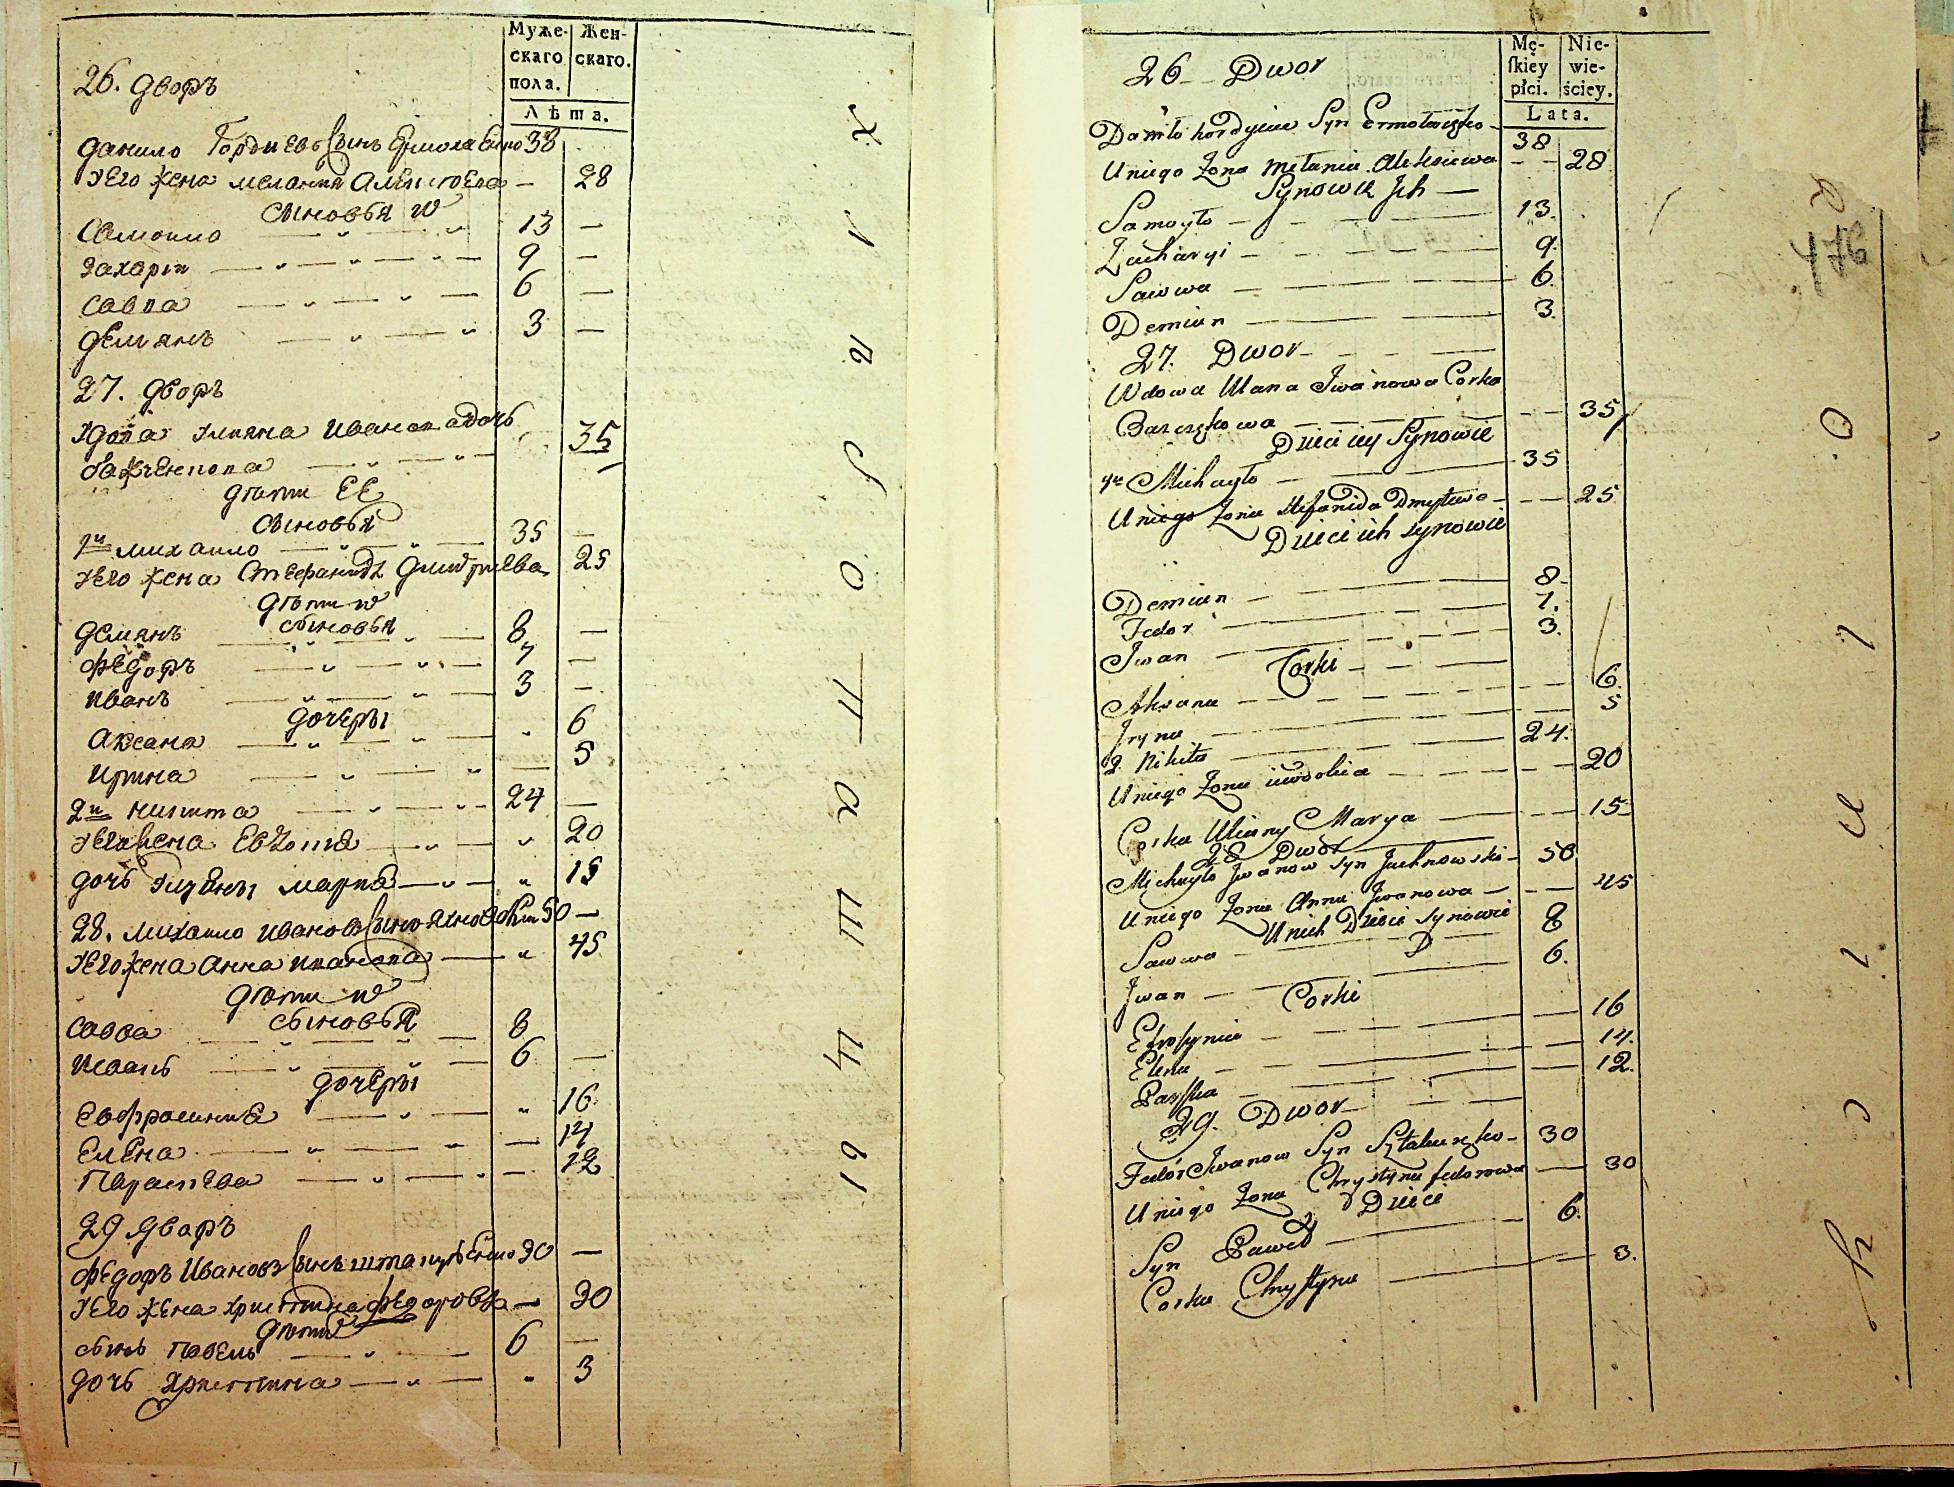 Муже-
скаго
пола.
Жен-
скаго.
Лѣта.
26. дворъ
данило Гордиевъ сынъ Ермолаенко 38
Его жена мелания Алексѣева — 28
сыновья
Самоило 13 —
Захарїи 9 —
Савва 6 —
демянъ 3 —
27. дворъ
вдова Улияна Иванова дочь
35
дѣти ЕЕ
сыновья
1й михаило 35 —
Его жена Стефанида дмитриева 25
дѣти
сыновья
демянъ 8 —
фЕдоръ 7 —
иванъ 3 —
дочеры
Аксана 6
ирина 5
2й никита 24 —
Его жена Евдокия 20
дочь Улияны мария 15
28. михаило иванов сынъ яхновский 50 —
Его жена Анна иванова 45
дѣти
сыновья
Савва 8
иванъ 6 —
дочеры
Евфросиния 16
Елена 14
Параскева 12
29 дворъ
фЕдоръ Ивановъ сынъ 30 —
Его жена христина федорова — 30
дѣти
сынъ павелъ 6 —
дочь христина 3
Mę-
skiey
płci.
Nie-
wie-
ściey.
Lata.
26 Dwor
Daniło hordyiew Syn Ermołaieńko 38
U niego Żona Mełania Alexiewa 28
Synowie Ich
Samoyło 13.
Zacharyi 9.
Sawwa 6.
Demian 3.
27. Dwor
Wdowa Ulana Jwanowa Corka
35
Dzieci iey Synowie
1y Michayło 35
U niego Żona Stefanida Dmytrowa 25
Dzieci ich synowie
Demian 8
Fedor 7.
Jwan 3.
Corki
Aksana 6.
Jryna 5
2. Nikita 24.
U niego Żona iewdokia 20
Corka Uliany Marya 15
28 Dwor
Michayło Jwanow syn Juchnowski 50
U niego Żona Anna Jwanowa 45
U nich Dzieci synowie
Sawwa 8
Jwan 6.
Corki
Efrosynia 16
Elena 14.
Paraska 12.
29. Dwor
Fedór Jwanow Syn 30
U niego Żona Chrystyna fedorowa 30
Dzieci
Syn Paweł 6.
Corka Chrystyna 3.
476